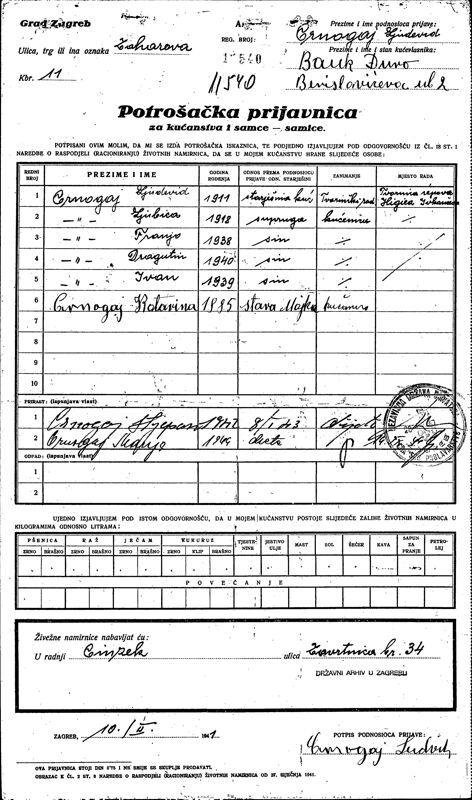 Grad Zagreb
Prezime i ime podnosioca prijave:
REG. BROJ:
Crnogaj Ljudevid
Ulica, trg ili ina oznaka Zaharova
11540
Prezime i ime i stan kućevlasnika:
Kbr. 11
11540
Bauk Đuro
Berislavićeva ul 2
Potrošačka prijavnica
za kućanstva i samce — samice.
POTPISANI OVIM MOLIM, DA MI SE IZDA POTROŠAČKA ISKAZNICA, TE PODJEDNO IZJAVLJUJEM POD ODGOVORNOŠĆU IZ ČL. 18 ST. 1
NAREDBE O RASPODJELI (RACIONIRANJU) ŽIVOTNIH NAMIRNICA, DA SE U MOJEM KUĆANSTVU HRANE SLIJEDEĆE OSOBE:
REDNI BROJ PREZIME I IME GODINA ROĐENJA ODNOS PREMA PODNOSIOCU PRIJAVE ODN. STARJEŠINI ZANIMANJE MJESTO RADA
1 Crnogaj Ljudevid 1911 starješina kuć Tvornički rad Tvornica
2 — " — Ljubica 1918 supruga kućanica
3 — " — Franjo 1938 sin
4 — " — Dragutin 1940 sin
5 — " — Ivan 1939 sin
6 Crnogaj Katarina 1885 stara Majka kućanica
7
8
9
10
PRIRAST: (ispunjava vlast)
1 Crnogaj Stjepan 8/I 43 dijete
2 Crnogaj Marija dijete
OTPAD: (ispunjava vlast)
1
2
UJEDNO IZJAVLJUJEM POD ISTOM ODGOVORNOŠĆU, DA U MOJEM KUĆANSTVU POSTOJE SLIJEDEĆE ZALIHE ŽIVOTNIH NAMIRNICA U
KILOGRAMIMA ODNOSNO LITRAMA:
PŠENICA RAŽ JEČAM KUKURUZ TJESTENINE JESTIVO ULJE MAST SOL ŠEĆER KAVA SAPUN ZA PRANJE PETROLEJ
ZRNO BRAŠNO ZRNO BRAŠNO ZRNO BRAŠNO ZRNO KLIP BRAŠNO
POVEĆANJE
Živežne namirnice nabavljat ću:
U radnji Cinzek ulica Zavrtnica br. 34
DRŽAVNI ARHIV U ZAGREBU
ZAGREB, 10./II. 1941
POTPIS PODNOSIOCA PRIJAVE:
Crnogaj Ludvik
OVA PRIJAVNICA STOJI DIN 0'75 I NE SMIJE SE SKUPLJE PRODAVATI.
OBRAZAC K ČL. 2 ST. 2 NAREDBE O RASPODJELI (RACIONIRANJU) ŽIVOTNIH NAMIRNICA OD 27. SIJEČNJA 1941.